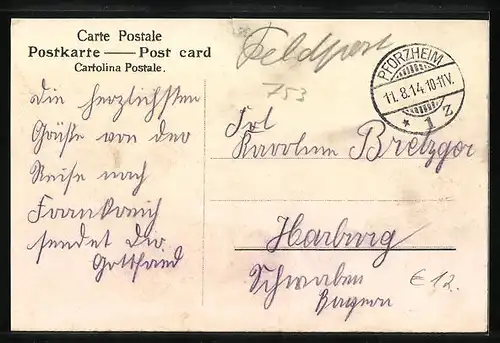 Carte Postale
Postkarte — Post card
Cartolina Postale.
Feldpost
753
PFORZHEIM
11.8.14.10-11V.
* 1 z
Die herzlichsten
Grüße von der
Reise nach
Frankreich
sendet Dir
Gottfried
Frl
Karoline Bretzger
Harburg
Schwaben
Bayern
€ 12.